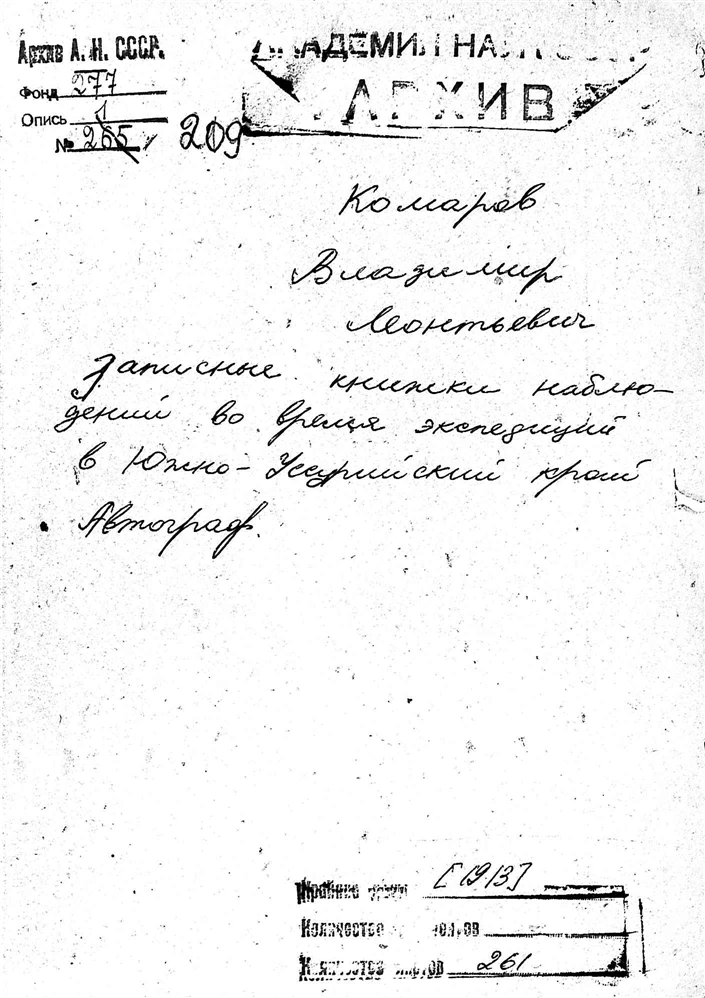 Архив А. Н. СССР.
Фонд 277
Опись 1
№ 265 209
АКАДЕМИЯ НАУК
АРХИВ
Комаров
Владимир
Леонтьевич
Записные книжки наблю-
дений во время экспедиций
в Южно-Уссурийский край
Автограф.
Крайние даты [1913]
Количество
Количество листов 261